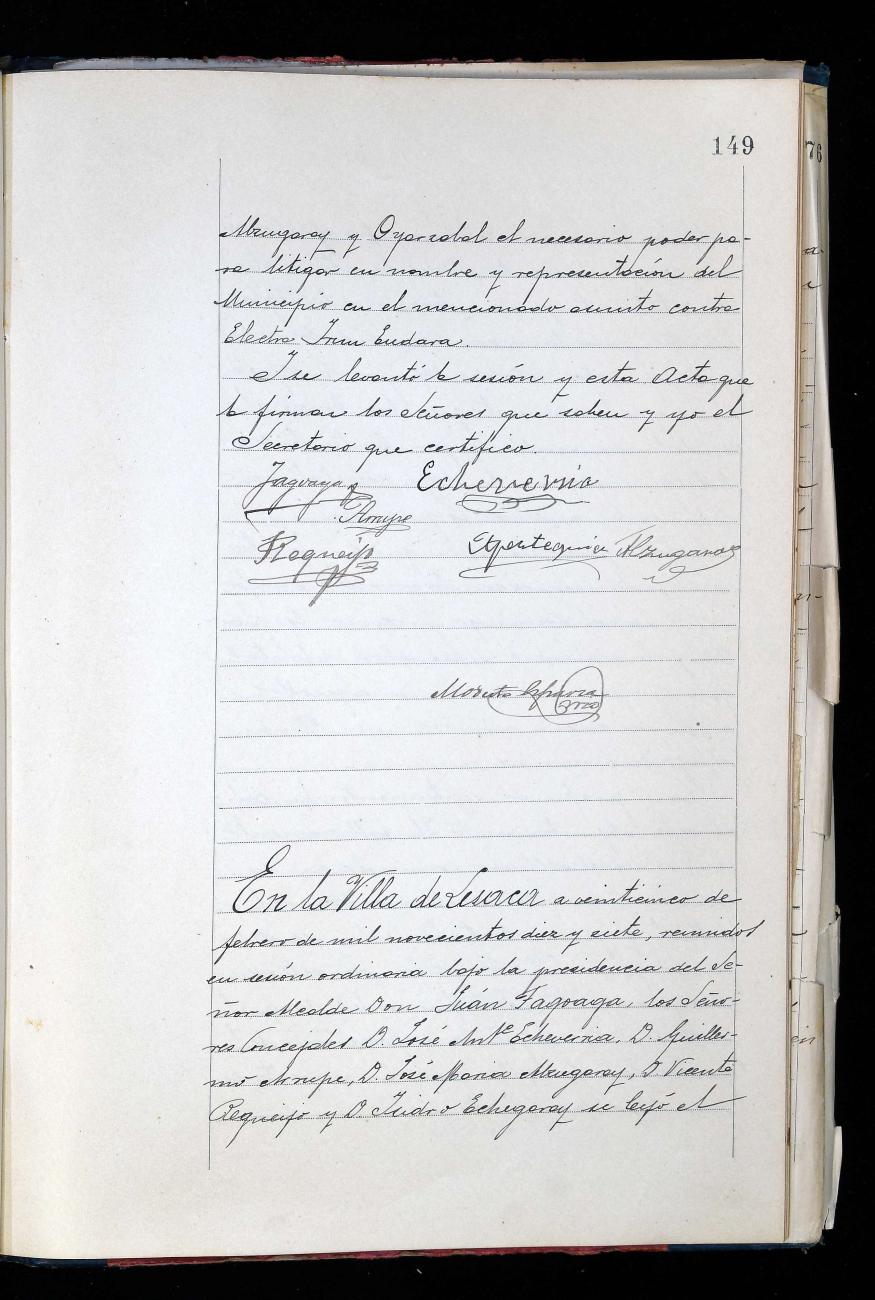 149
76
Alzugaray y Oyarzabal el necesario poder pa-
ra litigar en nombre y representación del
Municipio en el mencionado asunto contra
Electra Irun Endara.
Y se levantó la sesión y esta Acta que
la firman los Señores que saben y yo el
Secretario que certifico.
Fagoaga Echeverria
Arrupe
Requeijo Apezteguia Alzugaray
Modesto Esparza
En la Villa de Lesaca a veinticinco de
febrero de mil novecientos diez y siete, reunidos
en sesión ordinaria bajo la presidencia del Se-
ñor Alcalde Don Juán Fagoaga, los Seño-
res Concejales D. José Antº Echeverria, D. Guiller-
mo Arrupe, D. José Maria Alzugaray, D. Vicente
Requeijo y D. Isidro Echegaray se leyó el